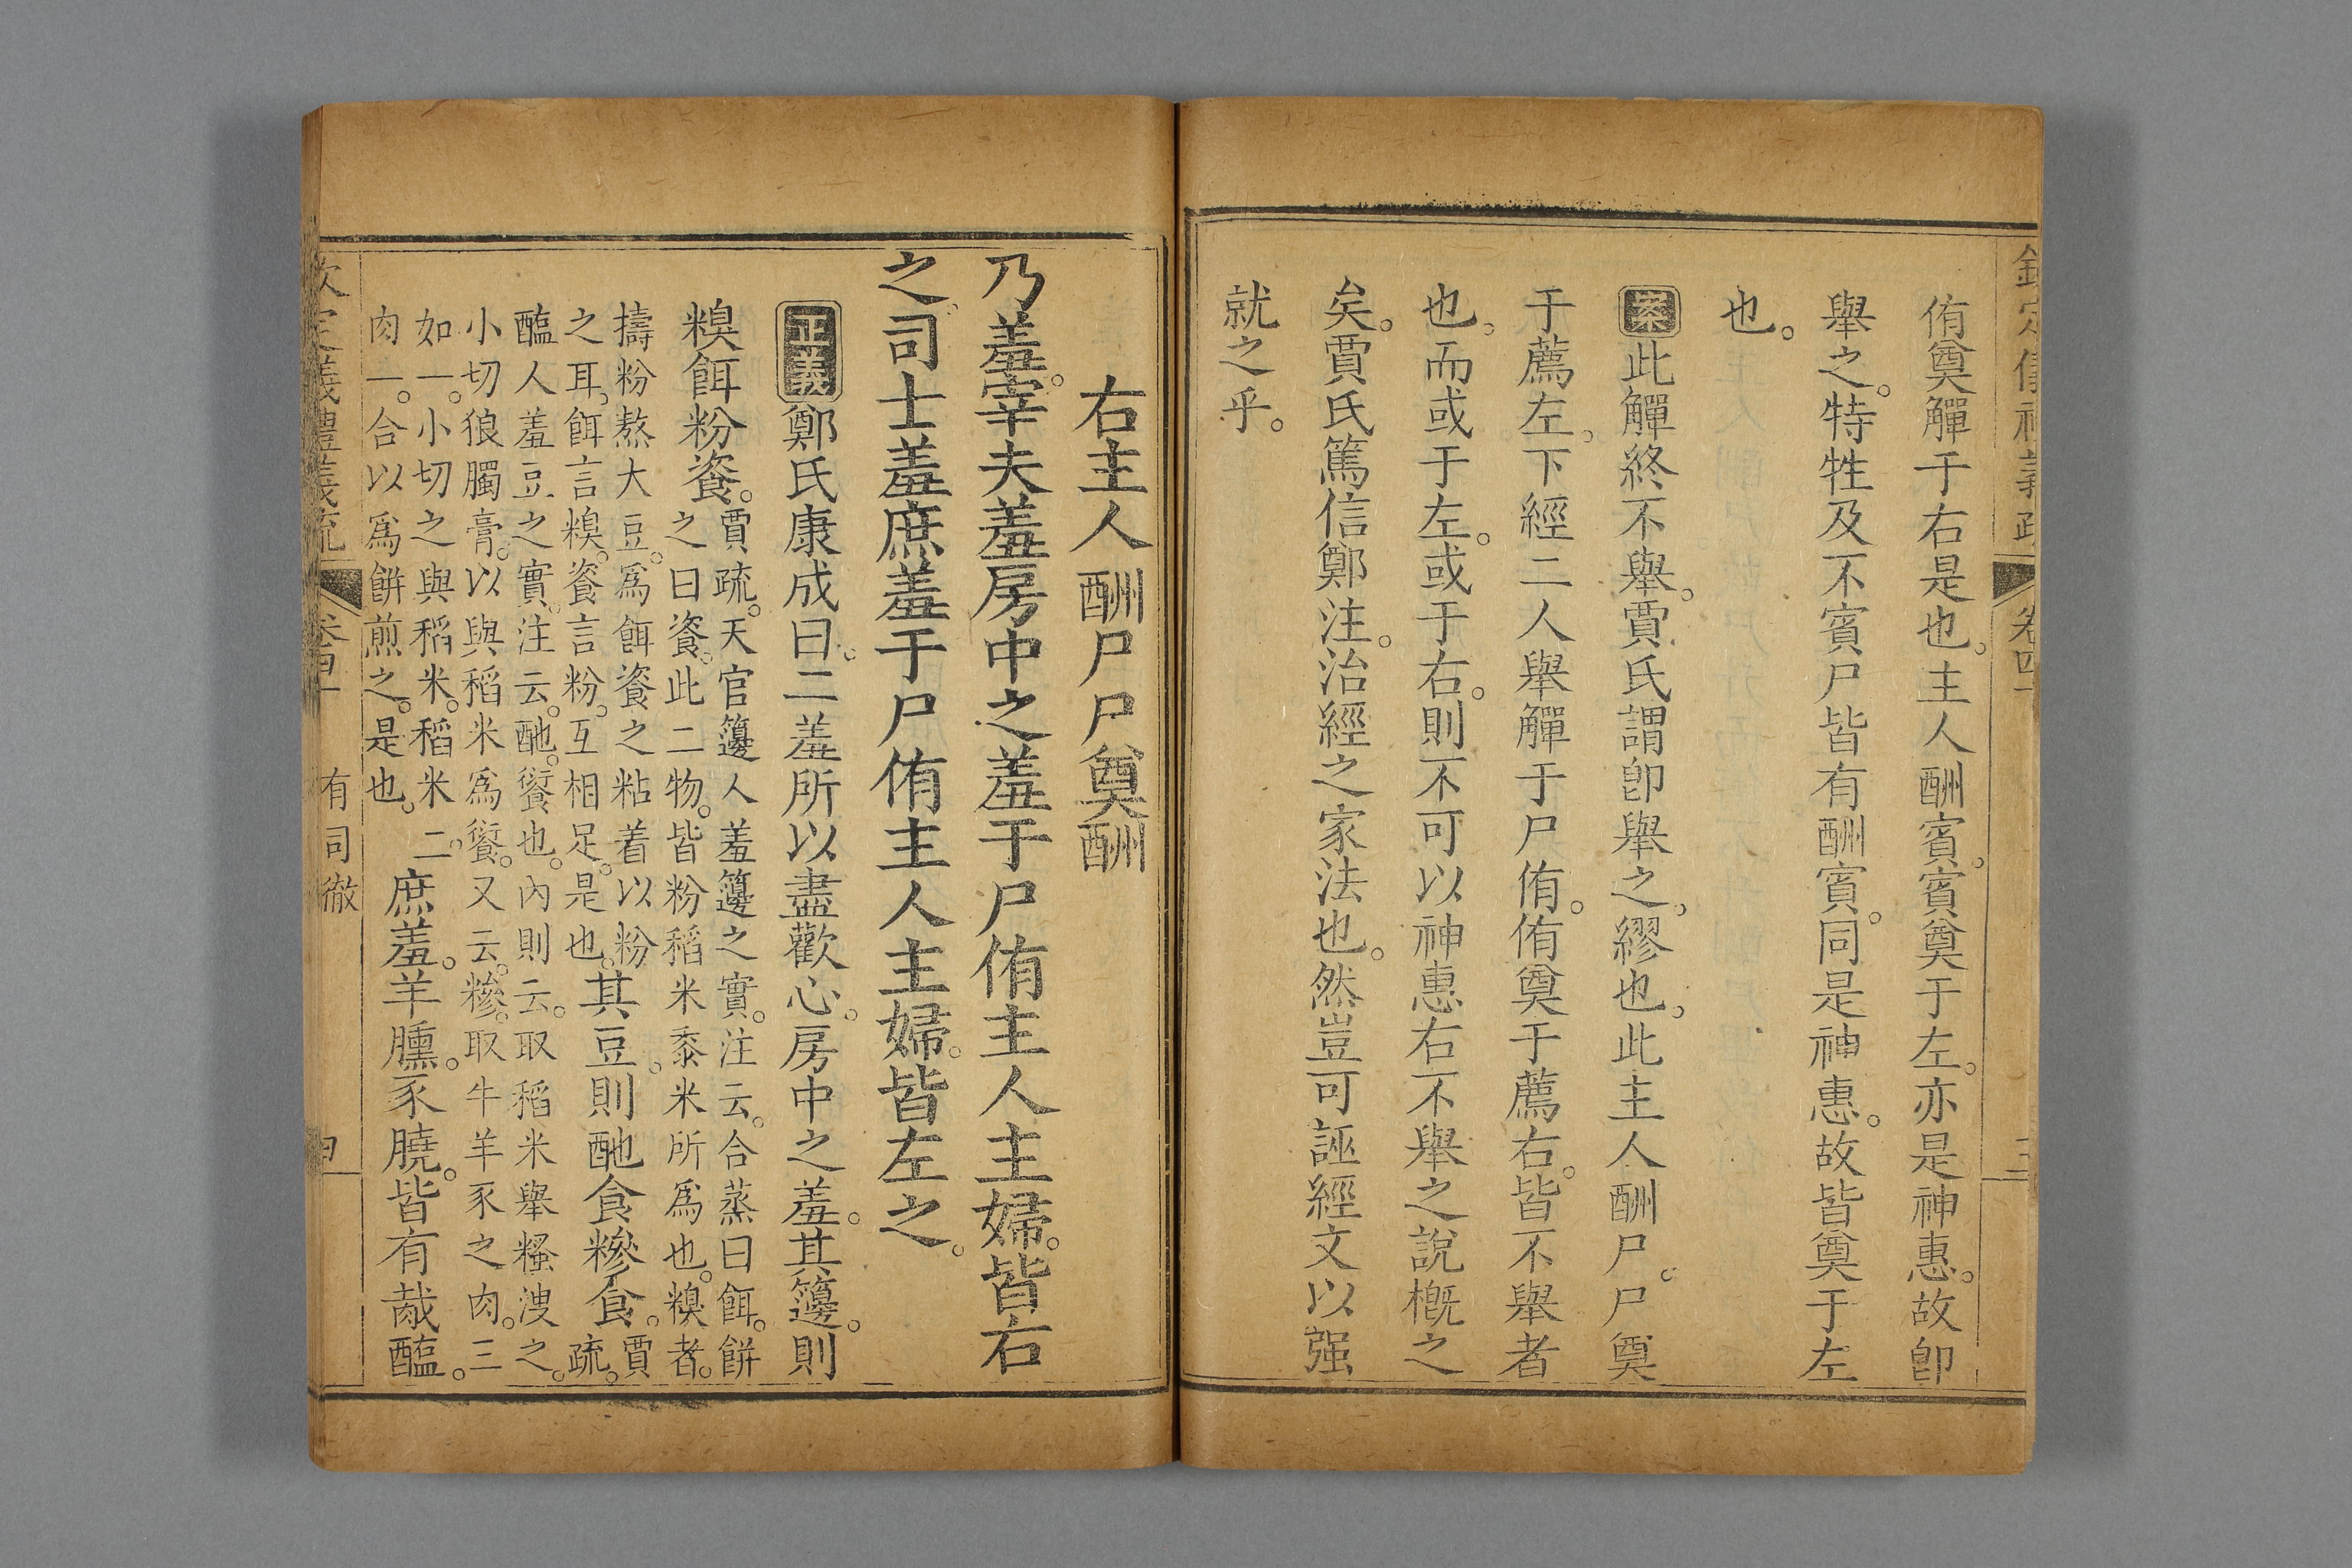 侑奠觶于右是也。主人酬賓。賓奠于左。亦是神惠。故卽
舉之。特牲及不賓尸皆有酬賓。同是神惠。故皆奠于左
也。
案此觶終不舉。賈氏謂卽舉之。繆也。此主人酬尸。尸奠
于薦左。下經二人舉觶于尸侑。侑奠于薦右。皆不舉者
也。而或于左。或于右。則不可以神惠右不舉之說槪之
矣。賈氏篤信鄭注。治經之家法也。然豈可誣經文以强
就之乎。
右主人酬尸尸奠酬
乃羞。宰夫羞房中之羞于尸侑主人主婦。皆右
之。司士羞庶羞于尸侑主人主婦。皆左之。
正義鄭氏康成曰。二羞所以盡歡心。房中之羞。其籩。則
糗餌粉餈。
賈疏。天官籩人羞籩之實。注云。合蒸曰餌。餅
之曰餈。此二物。皆粉稻米黍米所爲也。糗者。
擣粉熬大豆。爲餌餈之粘着以粉
之耳。餌言糗。餈言粉。互相足。是也。
其豆。則酏食糝食。
賈
疏。
醢人羞豆之實。注云。酏。餰也。內則云。取稻米舉糔溲之。
小切狼臅膏。以與稻米爲餰。又云。糝。取牛羊豕之肉。三
如一。小切之與稻米。稻米二。
肉一。合以爲餅煎之。是也。
庶羞。羊臐。豕膮。皆有胾醢。
欽定義禮義疏
卷四十
有司徹